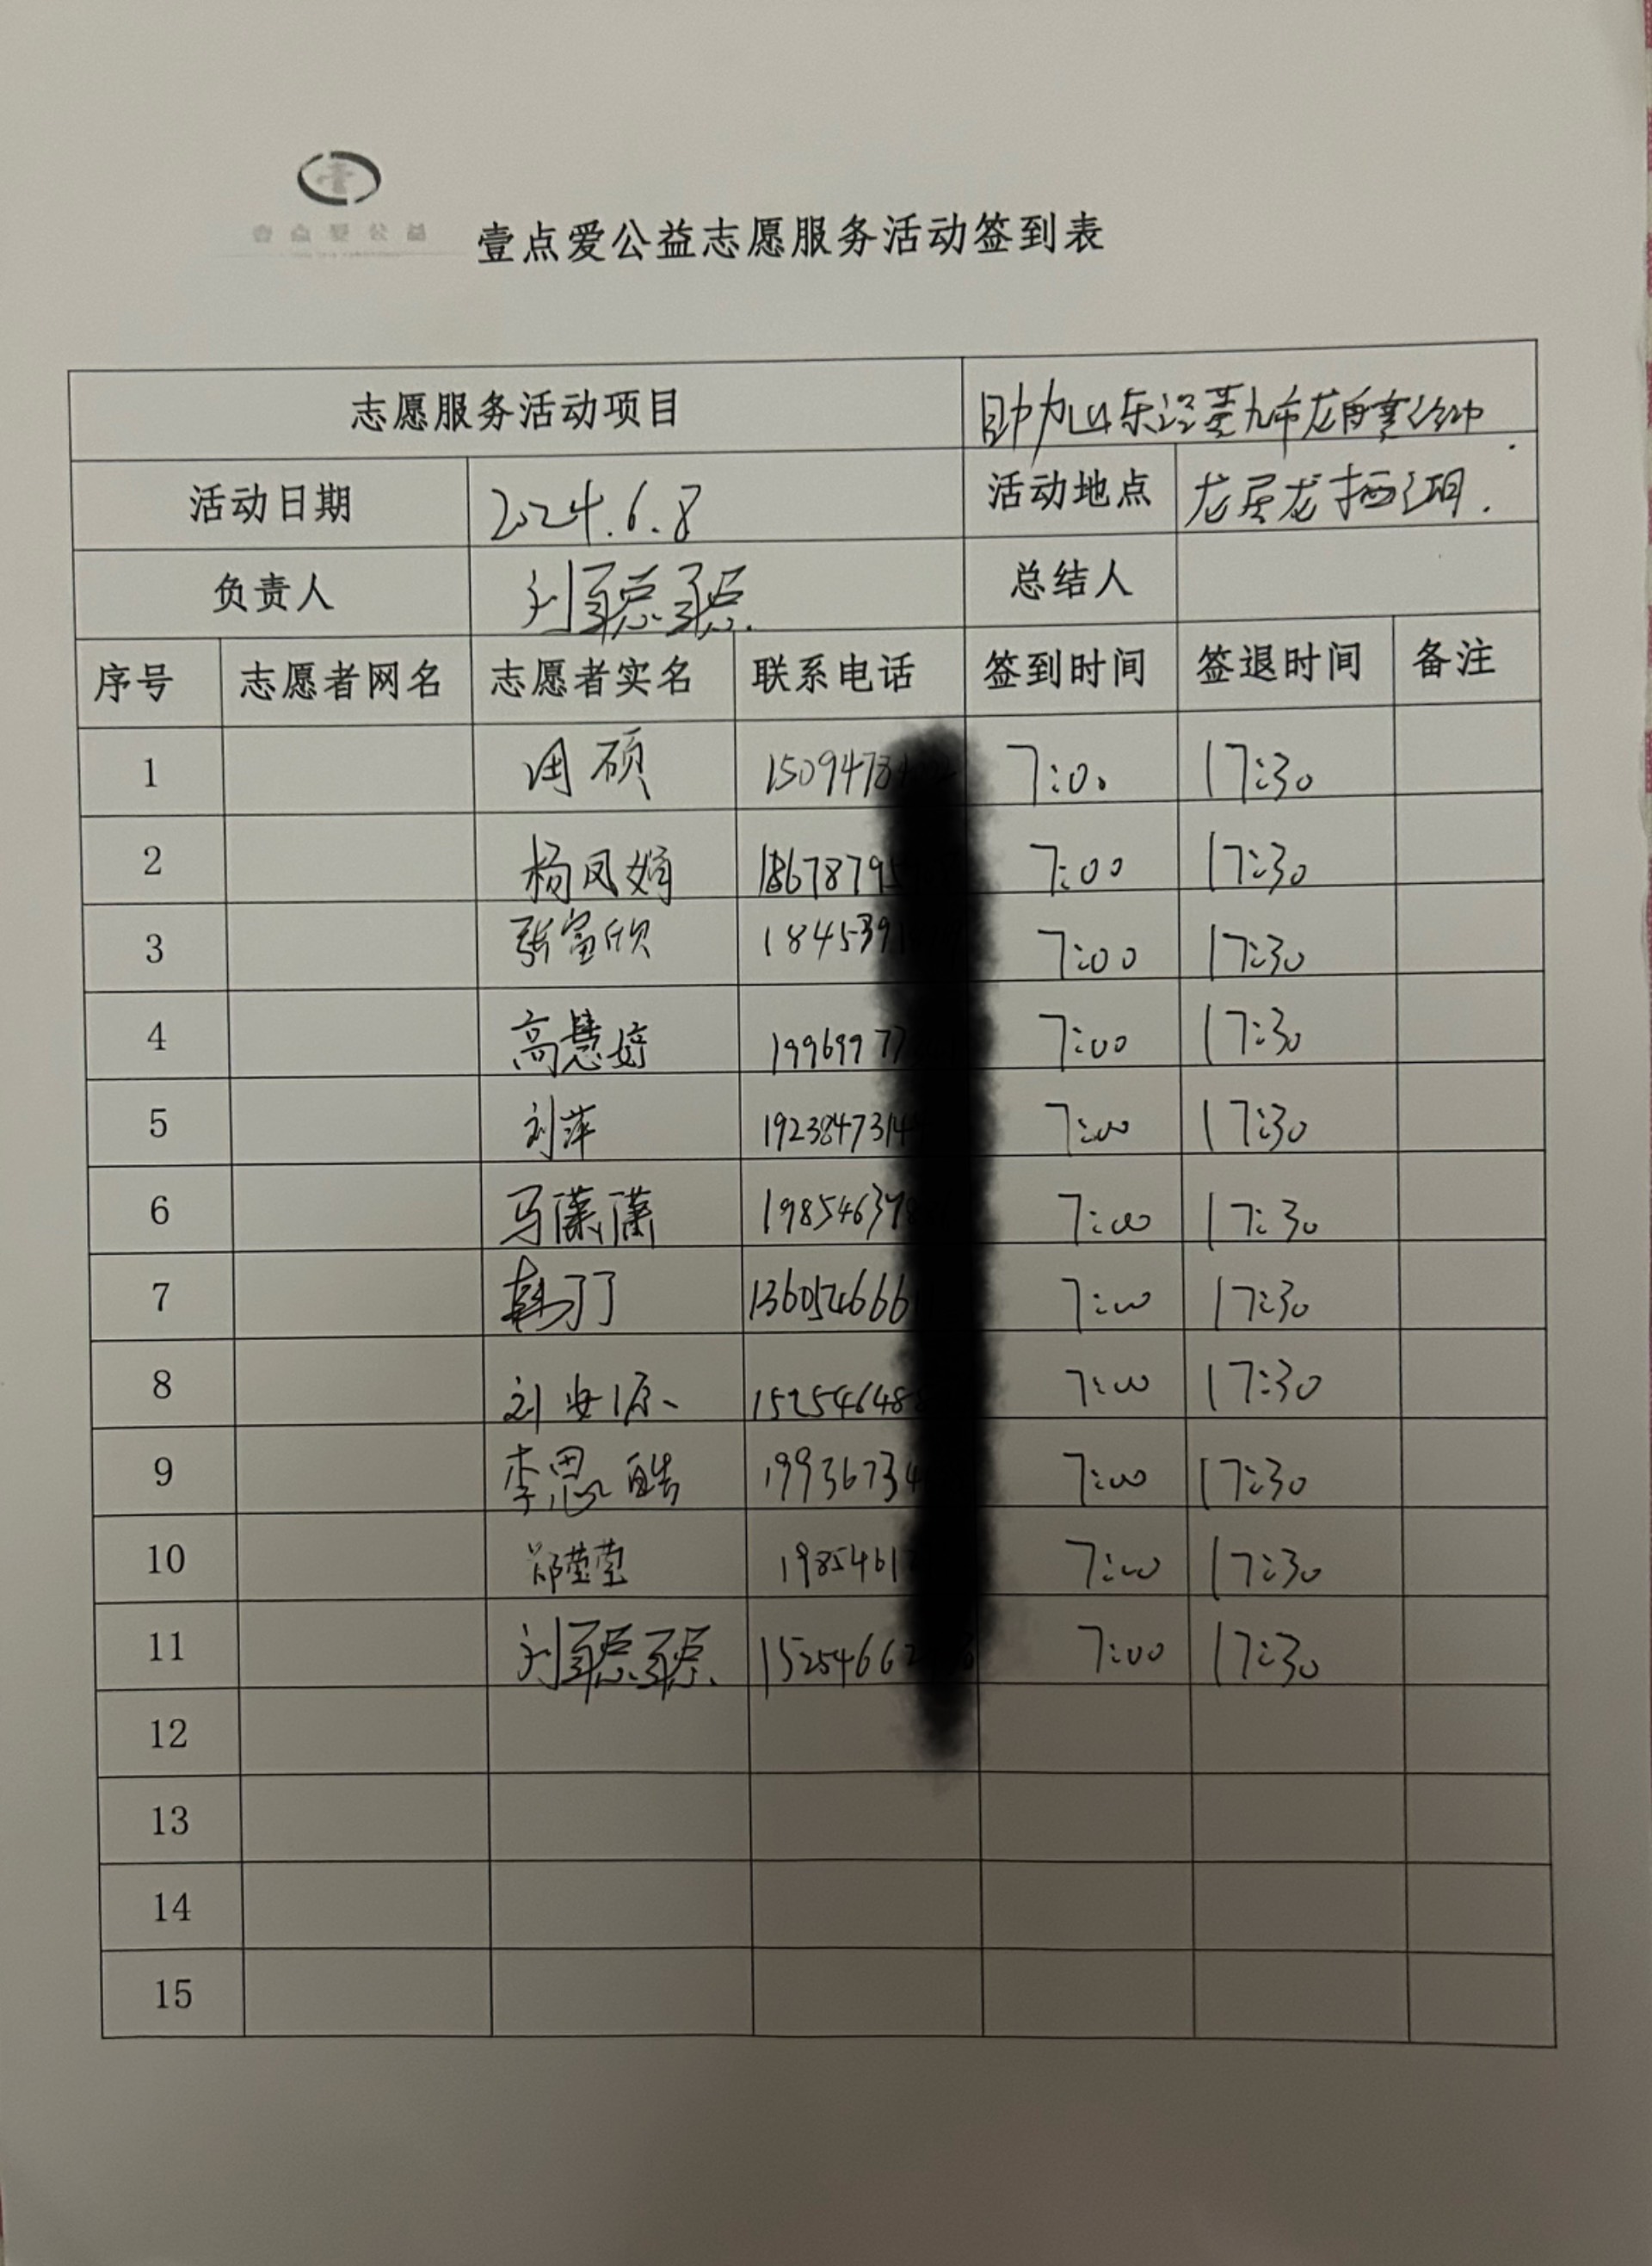 壹点爱公益
壹点爱公益志愿服务活动签到表
志愿服务活动项目 助力山东沿黄九市龙舟赛
活动日期 2024.6.8 活动地点 龙居龙栖湖.
负责人 刘聪聪 总结人
序号 志愿者网名 志愿者实名 联系电话 签到时间 签退时间 备注
1 周硕 1509478 7:00 17:30
2 杨凤娟 18678795 7:00 17:30
3 张富欣 1845391 7:00 17:30
4 高慧婷 19969977 7:00 17:30
5 刘萍 1923847314 7:00 17:30
6 马潇潇 19854637 7:00 17:30
7 韩丁丁 136054666 7:00 17:30
8 刘安源 152546488 7:00 17:30
9 李思皓 19936734 7:00 17:30
10 郑莹莹 1985461 7:00 17:30
11 刘聪聪 15254662 7:00 17:30
12
13
14
15